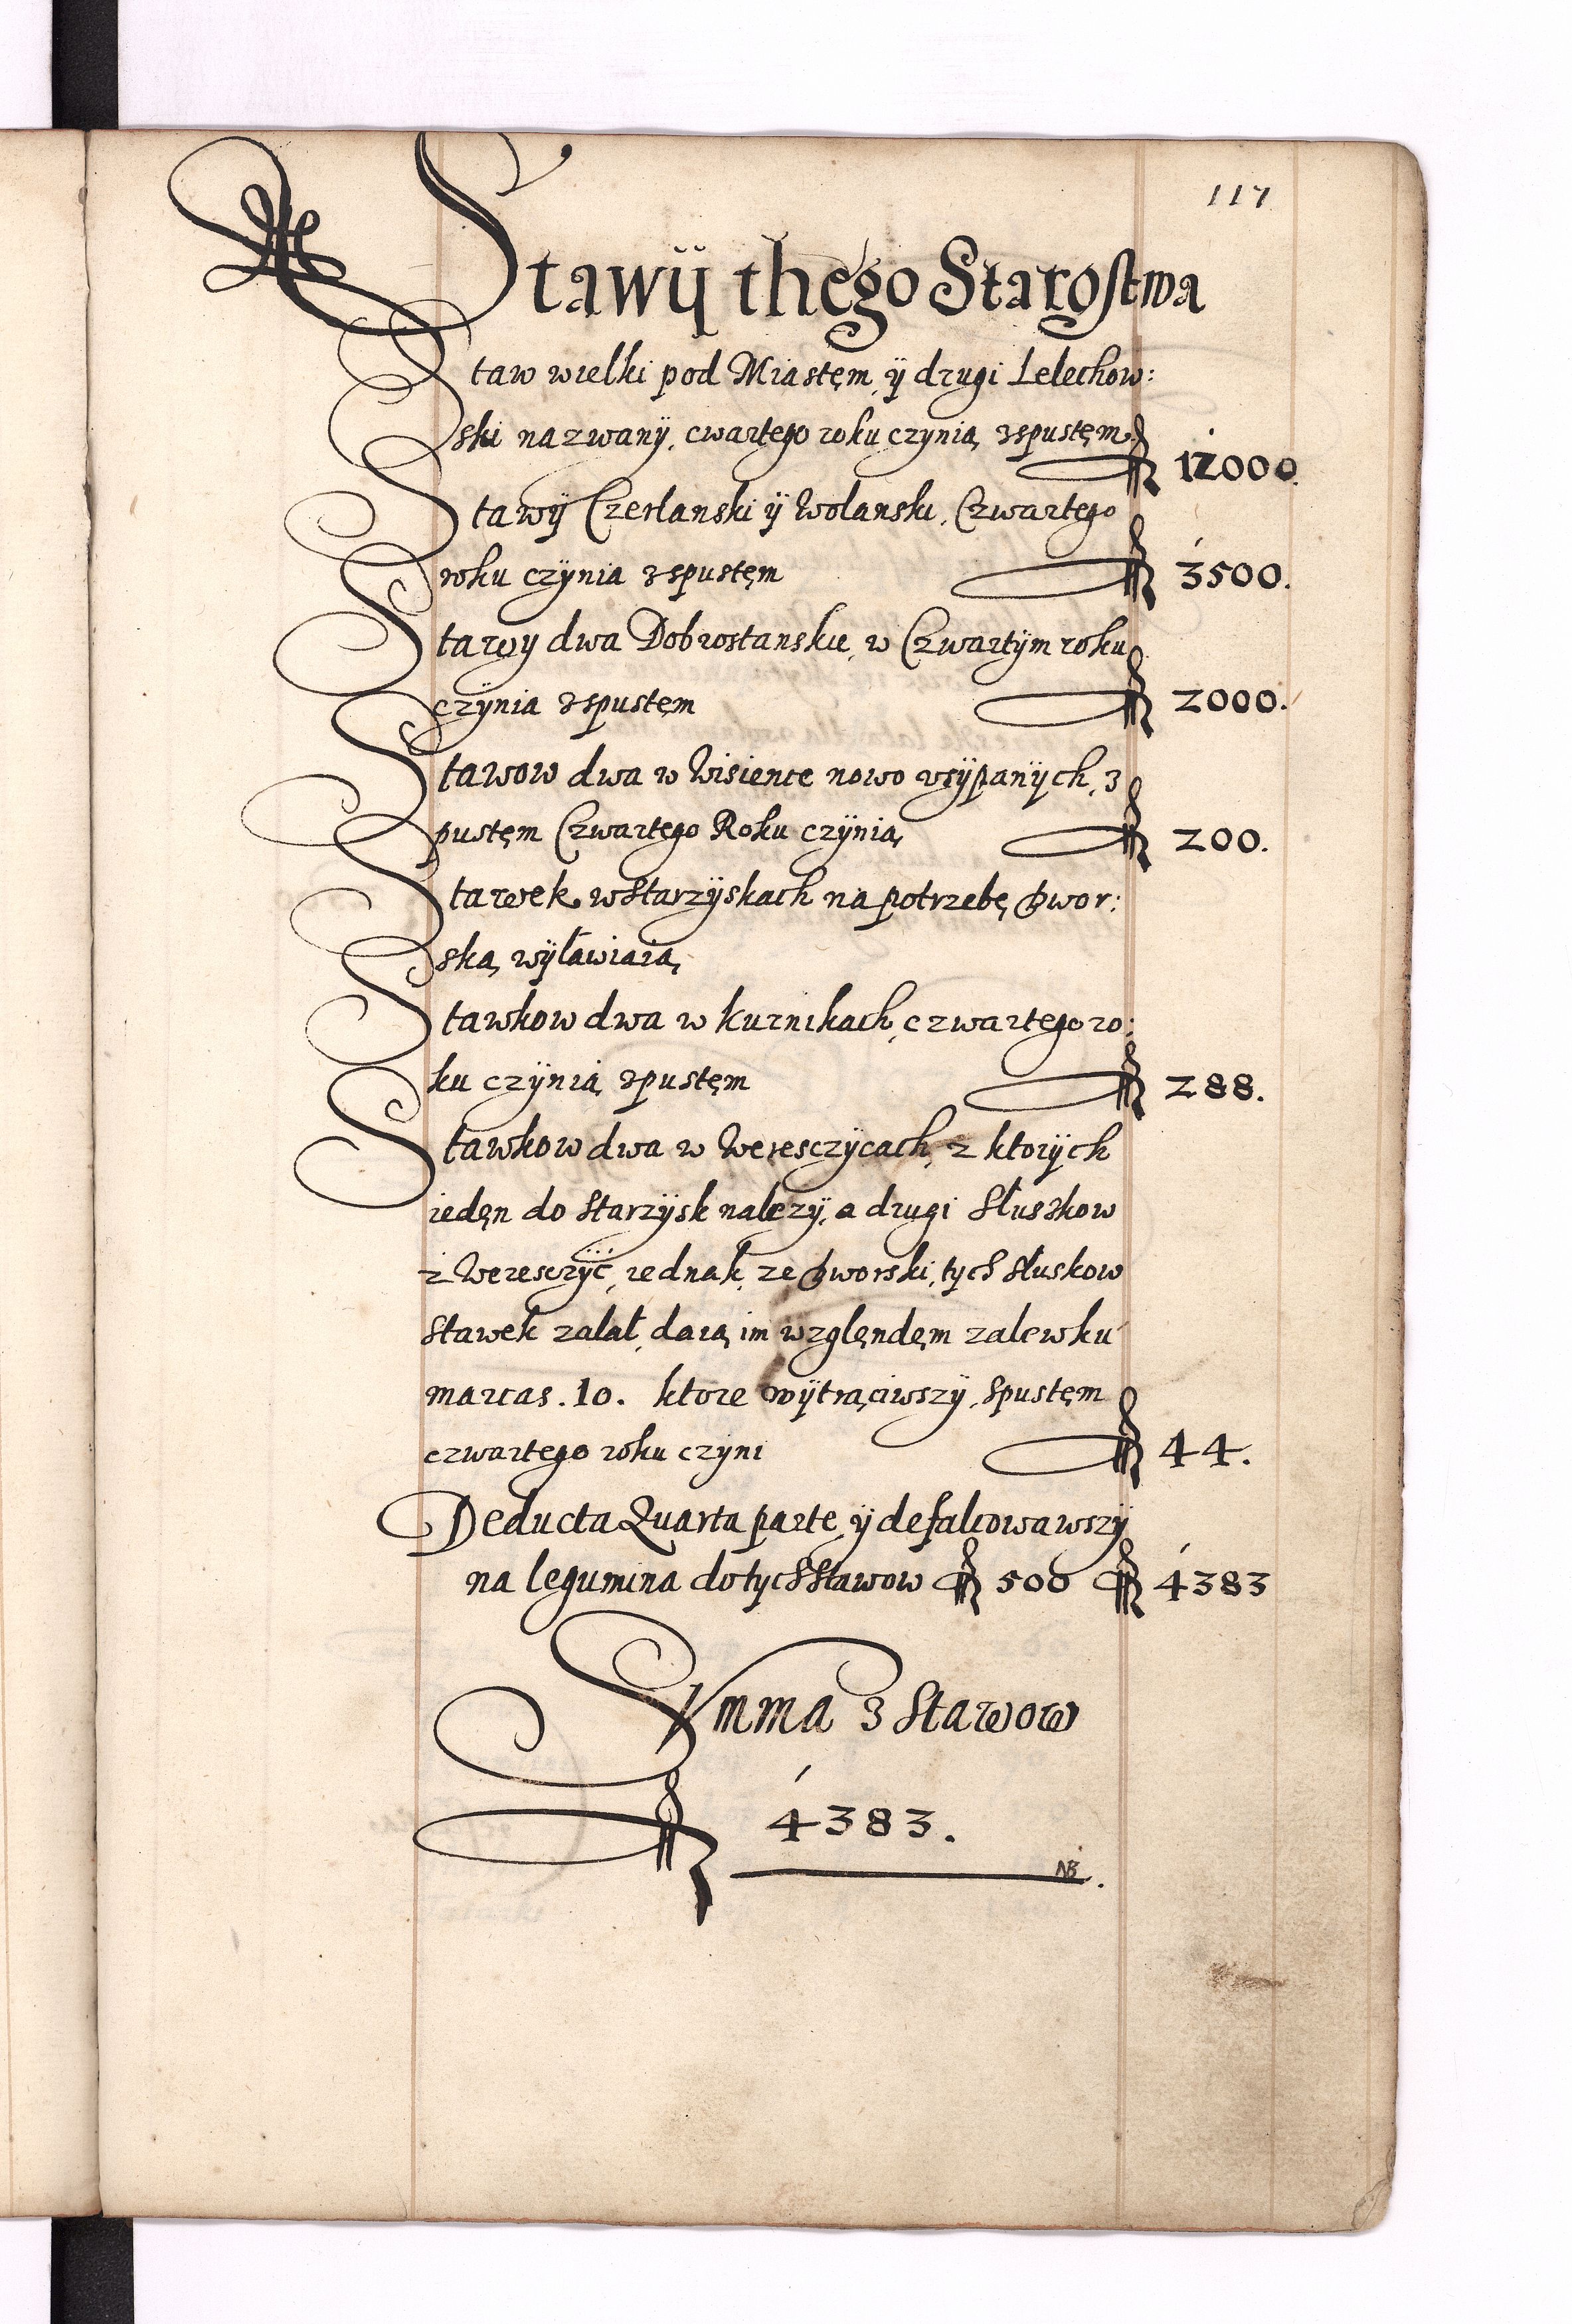 117
Stawÿ thego Starostwa
Staw wielki pod Miastęm, ÿ drugi Lelechow:
ski nazwanÿ, cwartego roku czynią zspustęm fl 12000.
Stawÿ Czerlanski ÿ Wolanski, Czwartego
roku czÿnia zspustęm fl 3500.
Stawy dwa Dobrostanskie, w Czwartÿm roku
czÿnia zspustęm fl 2000.
Stawow dwa w Wisience nowo vsÿpanÿch, z
pustęm Czwartego Roku czÿnią fl 200.
Stawek w Starzÿskach na potrzebę dwor:
ską wÿławiaią
Stawkow dwa w Kurnikach, czwartego ro:
ku czÿnią zpustęm fl 288.
Stawkow dwa w Weresczÿcach, z ktorÿch
iedęn do Starzÿsk należÿ, a drugi Słuszkow
z Weresczÿc, iednak, ze dworski, tych Słuskow
Stawek zalał, daią im wzglęndęm zalewku
marcas. 10. ktore wÿtrąciwszÿ, spustęm
czwartego roku czÿni fl 44.
Deducta Quarta parte ÿ defalcowawszÿ
na legumina do tych Stawow fl 500 fl 4383
Summa z Stawow
fl 4383.
NB.